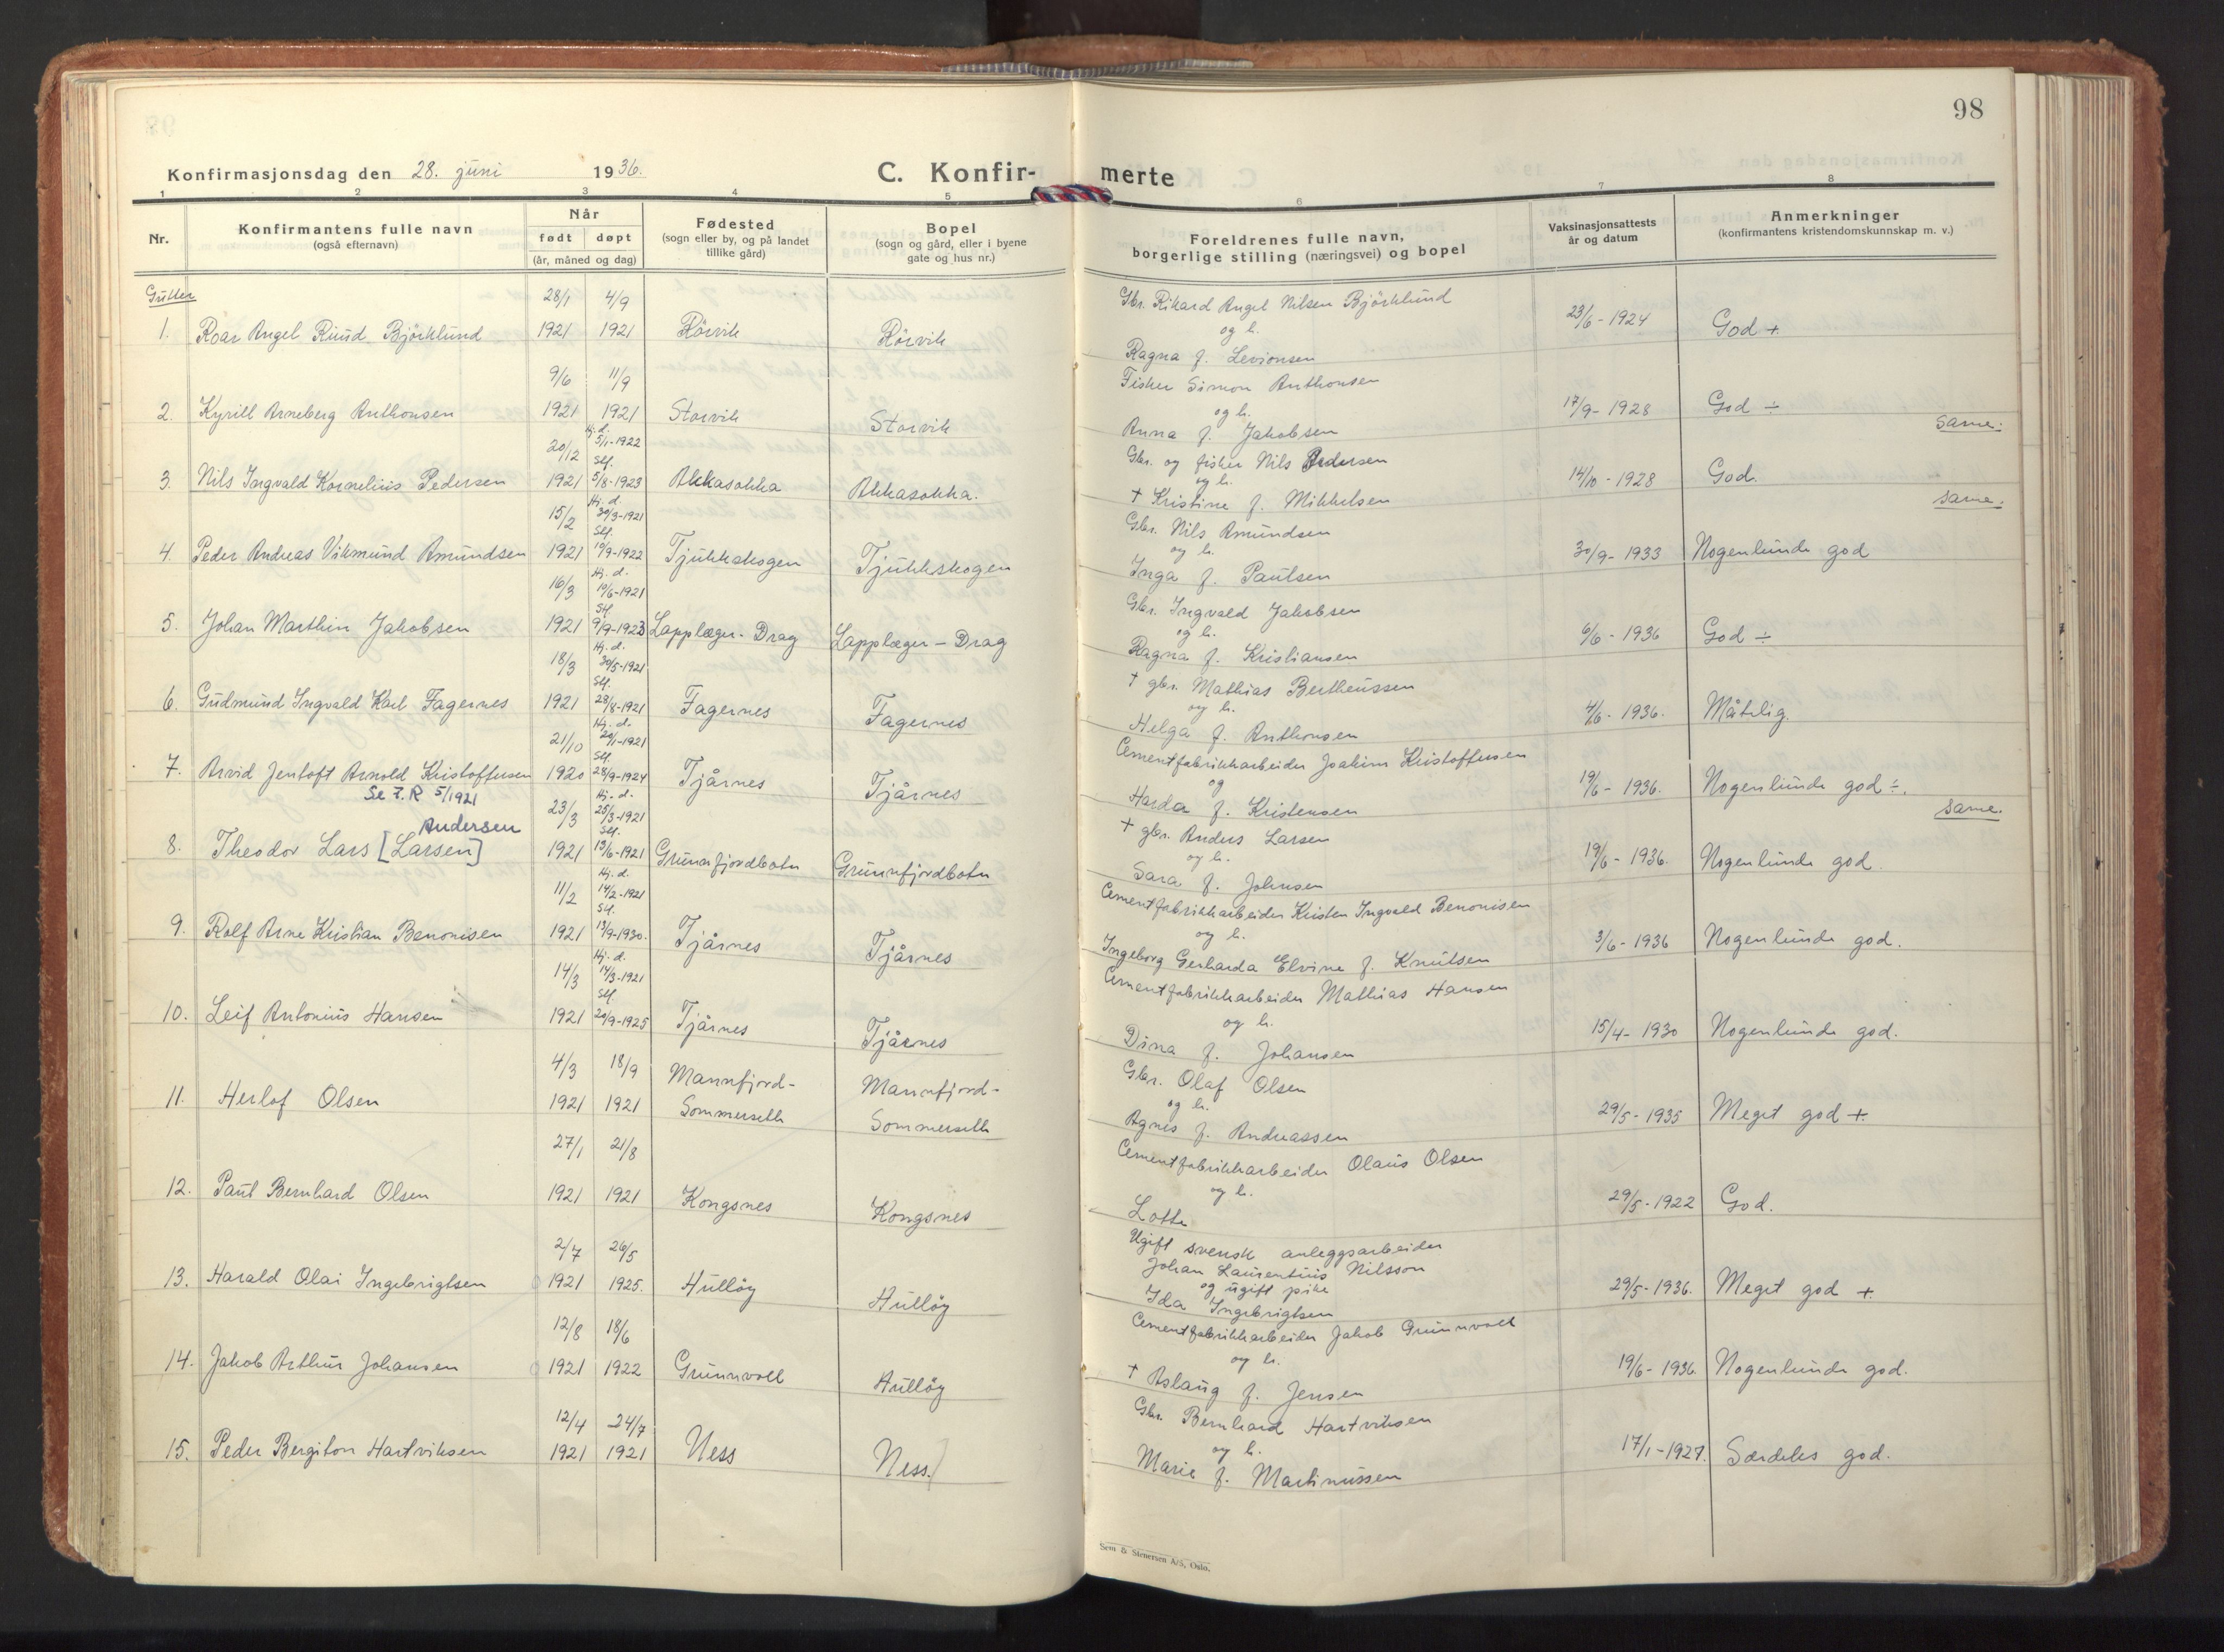 98
Konfirmasjonsdag den 28. juni 1936.
C. Konfir-
merte
1 2 3 4 5 6 7 8
Nr.
Konfirmantens fulle navn
(også efternavn)
Når
født døpt
(år, måned og dag)
Fødested
(sogn eller by, og på landet
tillike gård)
Bopel
(sogn og gård, eller i byene
gate og hus nr.)
Foreldrenes fulle navn,
borgerlige stilling (næringsvei) og bopel
Vaksinasjonsattests
år og datum
Anmerkninger
(konfirmantens kristendomskunnskap m. v.)
Gutter
28/1 4/9
Gbr. Rikard Angel Nilsen Björklund
1. Roar Angel Ruud Björklund 1921 1921 Rörvik Rörvik og h. 23/6-1924 God +
Ragna f. Levionsen
9/6 11/9
Fisker Simon Anthonsen
2. Kyrill Arneberg Anthonsen 1921 1921 Storvik Storvik og h. 17/9-1928 God ÷
Anna f. Jakobsen
same.
20/12 Hj. d. 5/1-1922 Stf.
Gbr. og fisker Nils Pedersen
3. Nils Ingvald Kornelius Pedersen 1921 5/8-1923 Akkasokka Akkasokka. og h. 14/10-1928 God.
+ Kristine f. Mikkelsen
same.
15/2 Hj. d. 30/3-1921 Stf.
Gbr. Nils Amundsen
4. Peder Andreas Vikmund Amundsen 1921 10/9-1922 Tjukkskogen Tjukkskogen og h. 30/9-1933 Nogenlunde god
Inga f. Paulsen
16/3 Hj. d. 19/6-1921 Stf.
Gbr. Ingvald Jakobsen
5. Johan Marthin Jakobsen 1921 9/9-1923 Lapplæger-Drag Lapplæger-Drag og h. 6/6-1936 God ÷
Ragna f. Kristiansen
18/3 Hj. d. 30/5-1921 Stf.
+ gbr. Mathias Bertheussen
6. Gudmund Ingvald Karl Fagernes 1921 28/8-1921 Fagernes Fagernes og h. 4/6-1936. Måtelig.
Helga f. Anthonsen
21/10 Hj. d. 20/1-1921 Stf.
Cementfabrikkarbeider Joakim Kristoffersen
7. Arvid Jentoft Arnold Kristoffersen 1920 28/9-1924 Tjårnes Tjårnes og 19/6-1936. Nogenlunde god ÷.
Se F. R 5/1921
Harda f. Kristensen
same.
23/3 Hj. d. 25/3-1921 Stf.
Andersen
+ gbr. Anders Larsen
8. Theodor Lars [Larsen] 1921 13/6-1921 Grunnfjordbotn Grunnfjordbotn og h. 19/6-1936. Nogenlunde god.
Sara f. Johnsen
11/2 Hj. d. 14/2-1921 Stf.
Cementfabrikkarbeider Kristen Ingvald Benonisen
9. Rolf Arne Kristian Benonisen 1921 13/9-1930. Tjårnes Tjårnes og h. 3/6-1936 Nogenlunde god.
Ingeborg Gerharda Elvine f. Knutsen
14/3 Hj. d. 14/3-1921 Stf.
Cementfabrikkarbeider Mathias Hansen
10. Leif Antonius Hansen 1921 20/9-1925 Tjårnes Tjårnes og h. 15/4-1930 Nogenlunde god.
Dina f. Johansen
4/3 18/9 Mannfjord- Mannfjord-
Gbr. Olaf Olsen
11. Herlof Olsen 1921 1921 Sommerseth Sommerseth og h. 29/5-1935 Meget god +.
Agnes f. Andreassen
27/1 21/8
Cementfabrikkarbeider Olaus Olsen
12. Paul Bernhard Olsen 1921 1921 Kongsnes Kongsnes og h. 29/5-1922 God.
Lotte
2/7 26/5
Ugift svensk anleggsarbeider
Johan Laurentius Nilsson
13. Harald Olai Ingebrigtsen 1921 1925. Hulløy Hulløy og ugift pike 29/5-1936. Meget god +
Ida Ingebrigtsen
12/8 18/6
Cementfabrikkarbeider Jakob Grunnvoll
14. Jakob Arthur Johansen 1921 1922 Grunnvoll Hulløy og h. 19/6-1936. Nogenlunde god.
+ Aslaug f. Jensen
12/4 24/7
Gbr. Bernhard Hartviksen
15. Peder Bergiton Hartviksen 1921 1921 Ness Ness. og h. 17/1-1927. Særdeles god.
Marie f. Martinussen
Sem & Stenersen A/S, Oslo.